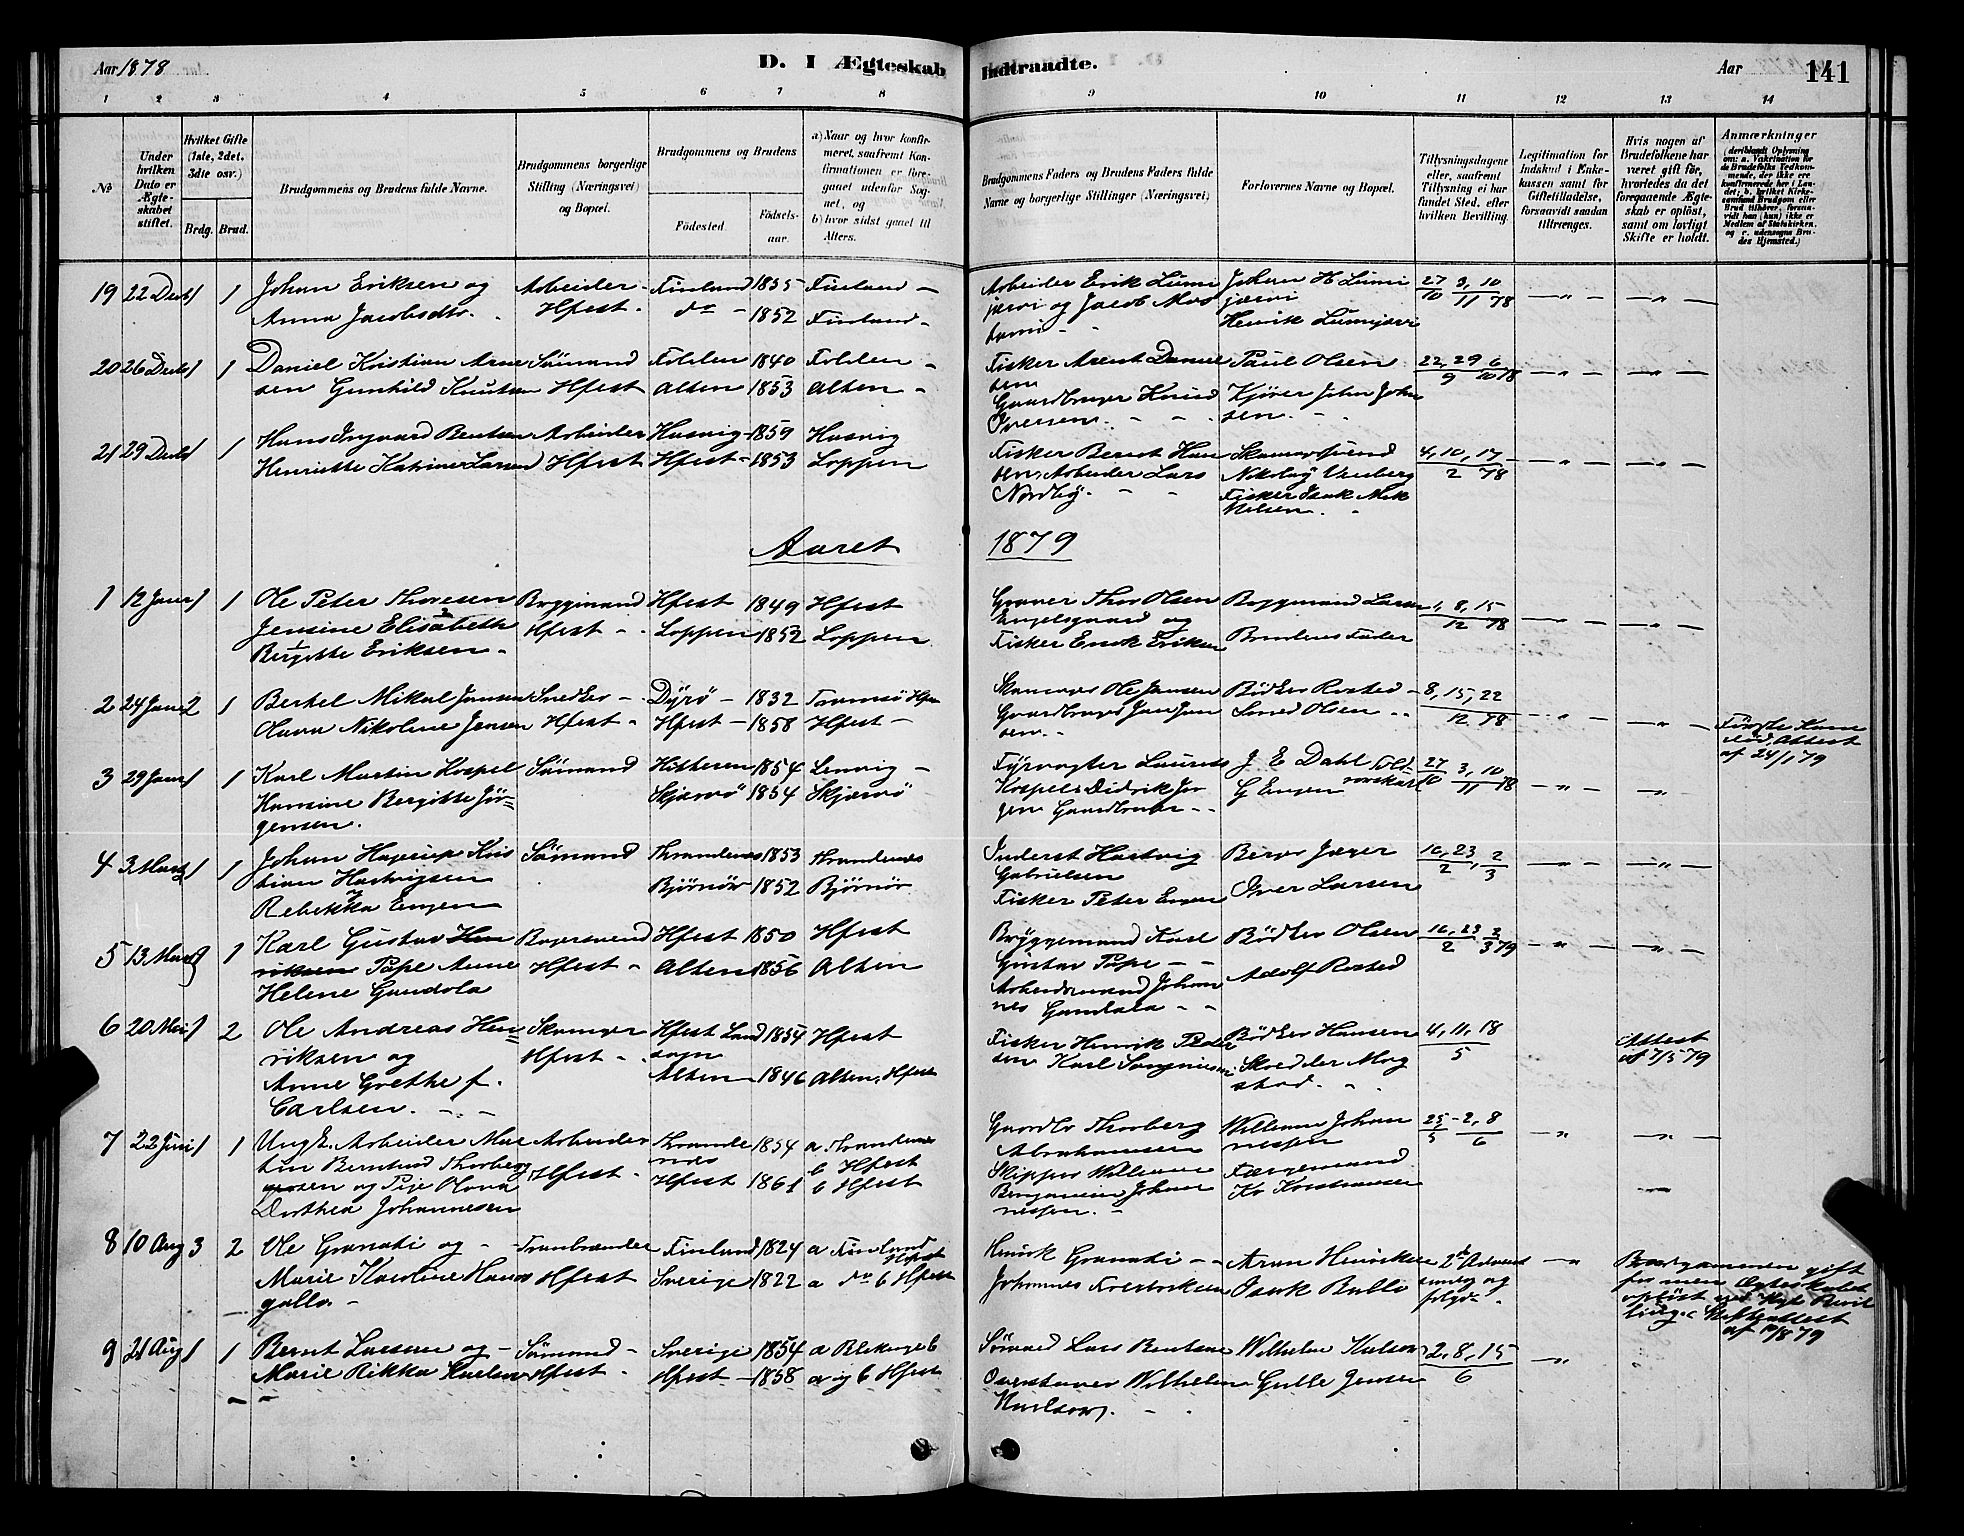 Aar 1878
D. I Ægteskab Indtraadte.
Aar
141
1 2 3 4 5 6 7 8 9 10 11 12 13 14
No
Under hvilken Dato er Ægteskabet stiftet.
Hvilket Gifte (1ste, 2det, 3die osv.)
Brdg. Brud.
Brudgommens og Brudens fulde Navne.
Brudgommens borgerlige Stilling (Næringsvei) og Bopæl.
Brudgommens og Brudens
Fødested.
Fødselsaar.
a) Naar og hvor konfirmeret, saafremt Konfirmationen er foregaaet udenfor Sognet, og
b) hvor sidst gaaet til Alters.
Brudgommens Faders og Brudens Faders fulde Navne og borgerlige Stillinger (Næringsvei)
Forlovernes Navne og Bopæl.
Tillysningsdagene eller, saafremt Tillysning ei har fundet Sted, efter hvilken Bevilling.
Legitimation for Indskud i Enkekassen samt for Giftetilladelse, forsaavidt saadan tiltrænges.
Hvis nogen af Brudefolkene har været gift før, hvorledes da det foregaaende Ægteskab er opløst, samt om lovligt Skifte er holdt.
Anmærkninger
19 22 Decb 1 1 Johan Eriksen og Arbeider Finland 1855 Finland
Anna Jacobsdtr. Hfest. do 1852 Finland
Arbeider Erik Lumijærvi og Jacob Johan H Lumijærvi 27/10 3, 10/11 78
Henrik Lumijærvi
20 26 Decb 1 1 Daniel Kristian Arntsen Sømand Folden 1840 Folden
Gunhild Knutsen Hfest Alten 1853 Alten
Fisker Arent Danielsen Paul Olsen 22, 29/9 6/10 78
Gaardbruger Knud Iversen Kjører John Johnsen
21 29 Decb 1 1 Hans Ingvard Bentsen Arbeider Husvig 1859 Husvig
Henriette Katrine Larsen Hfest Hfest 1853 Loppen
Fisker Berent Hansen, Arbeider Lars Nordby Skomagersvend Nikolay 4, 10, 17/2 78
Fisker Isak Mik Nilsen
Aaret 1879
1 12 Janr 1 1 Ole Peter Thoresen Bryggmand Hfest 1849 Hfest
Jensine Elisabeth Hfest Loppen 1852 Loppen
Bergitte Eriksen
Graver Thor Olsen Engelsgaard og Bryggmand Larsen 1, 8, 15/12 78
Fisker Enok Eriksen Brudens Fader
2 24 Janr 2 1 Bertel Mikal Jansen Snedker Dyrø 1832 Tromsø Hfest
Olava Nikoline Jensen Hfest Hfest 1858 Hfest
Skomager Ole Jansen Bødker Rosted 8, 15, 22/12 78
Gaardbruger Jan Jansen Smed Olsen
Attest af 24/1 79
3 29 Janr 1 1 Karl Martin Kospel Sømand Hitteren 1854 Lenvig
Hansine Bergitte Jørgensen. Skjærvø 1854 Skjærvø
Fyrvogter Laurits Kospel Didrik Jørgen Gaardbruger J. E Dahl Toldroerskarl 27/10 3, 10/11 78
G Engen
4 3 Marts 1 1 Johan Hagerup Kristian Hartvigsen Sømand Throndenes 1853 Throndenes
og Rebekka Engen Bjørnør 1852 Bjørnør
Inderst Hartvig Gabrielsen Berger Jæger 16, 23/2, 2/3
Fisker Peter Engen Iver Larsen
5 13 Marts 2 1 Karl Gustav Henriksen Pape Anne Bogersvend Hfest 1850 Hfest
Helene Gundola Hfest Alten 1856 Alten
Bryggemand Karl Gustav Pape Bødker Olsen 16, 23/2 2/3 79
Arbeidsmand Johannes Gundala Adolf Rosted
6 20 Mai 1 2 Ole Andreas Henriksen og Skomager Hfest Landsogn 1854 Hfest
Anne Grethe f. Carlsen. Hfest Alten 1846 Alten, Hfest
Fisker Henrik Pedersen Karl Bødker Hansen 4, 11, 18/5
Skrædder Mogstad.
Attest af 7/5 79
7 22 Juni 1 1 Ungk. Arbeider Martin Berntind Thorbergsen og Pige Olava Arbeider Throndenes 1854 a Throndenes b Hfest
Dorthea Johannesen Hfest Hfest 1861 b Hfest
Gaardbr Thorberg Abrahamsen Willum Johannessen 25/5 - 2, 8/6
Skipper Willum Benjamin Johannessen. Færgemand Kr Kristiansen
8 10 Aug 3 2 Ole Granati og Tranbrænder Finland 1824 a Finland Hfest
Marie Karoline Hfest Sverige 1822 a do b Hfest
Henrik Granati Aron Henriksen 2d Advent søndag og følgde
Johannes Fredriksen Isak Ballo
Brudgommen gift før men Ægteskabet opløst ved Kgl Bevilling. Skifteattest af 10/8 79
9 21 Aug 1 1 Bernt Larsen og Sømand Sverige 1854 a Blekinge b
Marie Rikka Karlsen Hfest Hfest 1858 a og b Hfest
Sømand Lars Bentsen Wilhelm Karlsen 2, 8, 15/6
Wilhelm Karlsen. Gulle Jensen